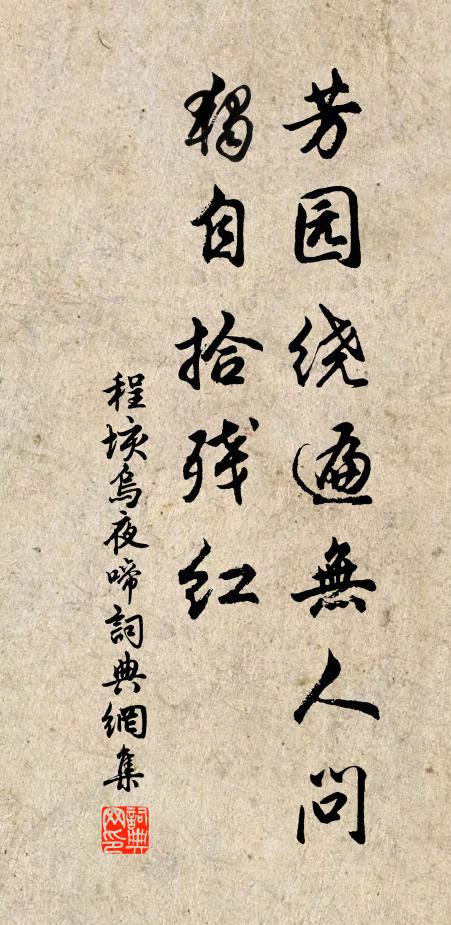 芳园绕遍無人问
獨自拾残红
程垓烏夜啼詞典網集
詞典网印